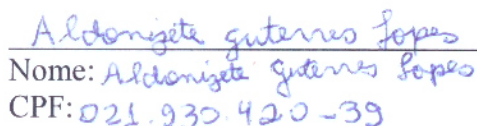 Aldonizete guterres Lopes
Nome: Aldonizete guterres Lopes
CPF: 021.930.420-39